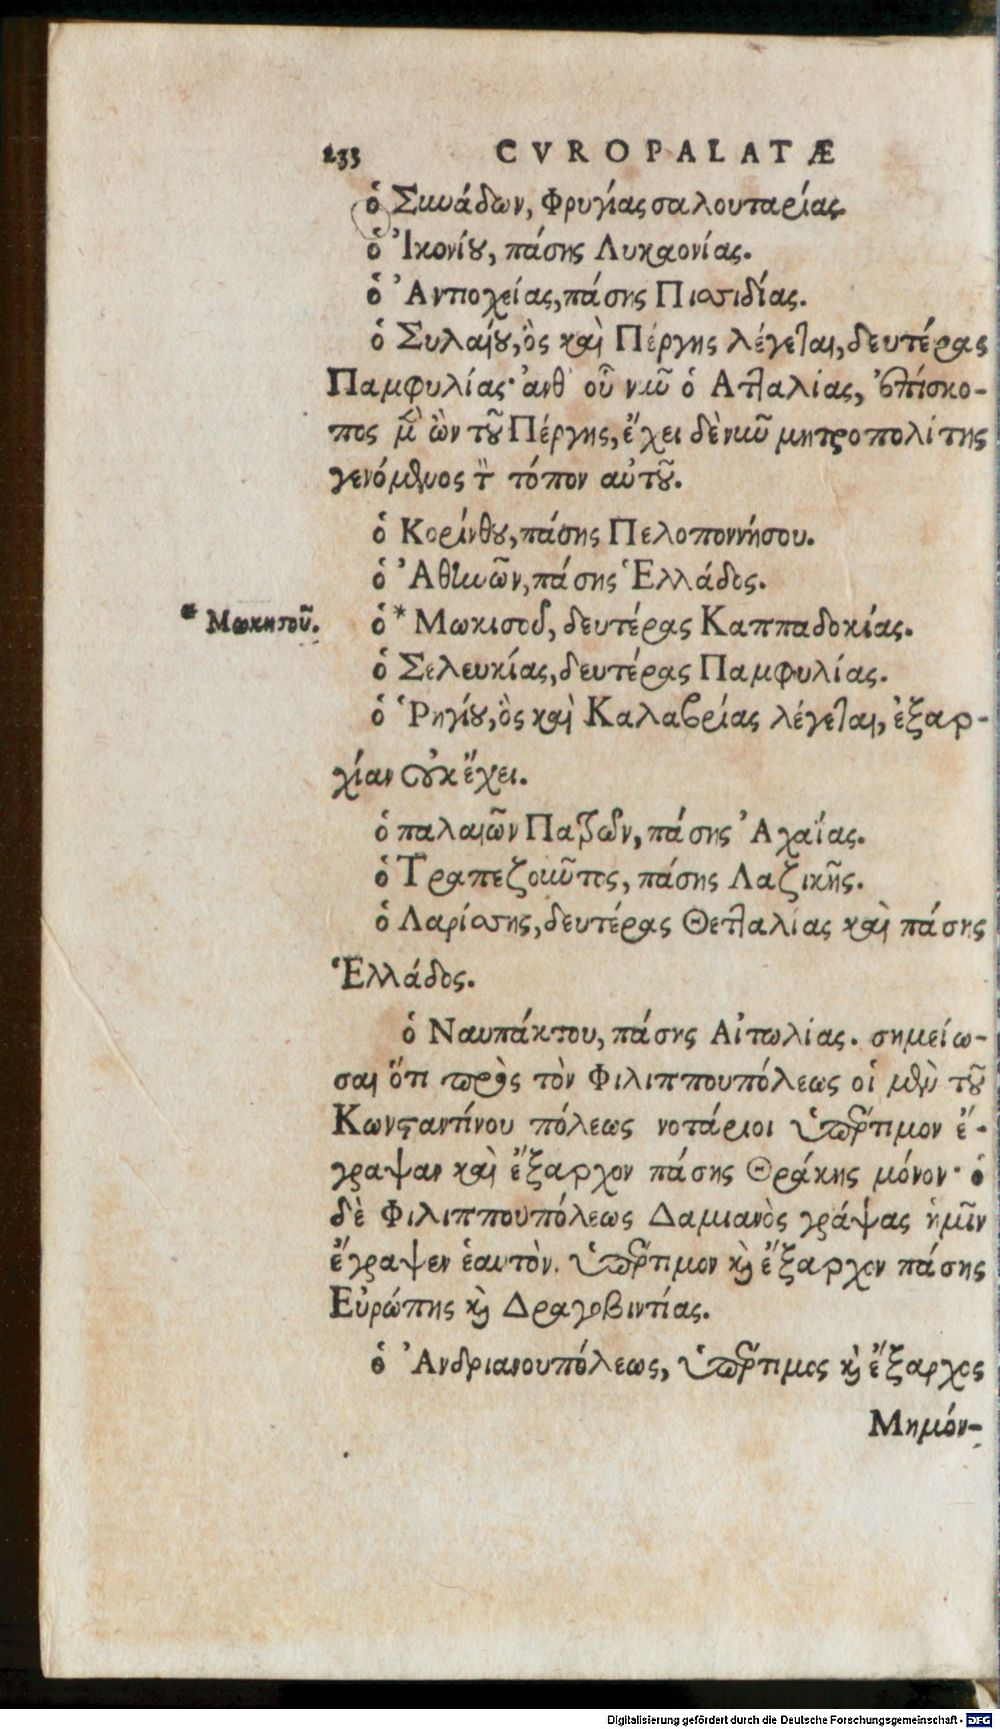 233 CVROPALATÆ
ὁ Συνάδων, Φρυγίας σαλουταρίας
ὁ Ἰκονίου, πάσης Λυκαονίας.
ὁ Ἀντιοχείας, πάσης Πισιδίας.
ὁ Συλαίου, ὃς καὶ Πέργης λέγεται, δευτέρας
Παμφυλίας· ἀνθ οὗ νῦν ὁ Ατταλίας, ἐπίσκο-
πος μὲν ὢν τοῦ Πέργης, ἔχει δὲ νῦν μητροπολίτης
γενόμενος τὸν τόπον αὐτοῦ.
ὁ Κορίνθου, πάσης Πελοποννήσου.
ὁ Ἀθηνῶν, πάσης Ἑλλάδος.
* Μωκησοῦ.
ὁ * Μωκισοῦ, δευτέρας Καππαδοκίας.
ὁ Σελευκίας, δευτέρας Παμφυλίας.
ὁ Ῥηγίου, ὃς καὶ Καλαβρίας λέγεται, ἐξαρ-
χίαν οὐκ ἔχει.
ὁ παλαιῶν Πατρῶν, πάσης Ἀχαΐας.
ὁ Τραπεζοῦντος, πάσης Λαζικῆς.
ὁ Λαρίσσης, δευτέρας Θετταλίας καὶ πάσης
Ἑλλάδος.
ὁ Ναυπάκτου, πάσης Αἰτωλίας. σημείω-
σαι ὅτι πρὸς τὸν Φιλιππουπόλεως οἱ μὲν τοῦ
Κωνσταντίνου πόλεως νοτάριοι ὑπέρτιμον ἔ-
γραψαν καὶ ἔξαρχον πάσης Θράκης μόνον· ὁ
δὲ Φιλιππουπόλεως Δαμιανὸς γράψας ἡμῖν
ἔγραψεν ἑαυτὸν. ὑπέρτιμον καὶ ἔξαρχον πάσης
Εὐρώπης καὶ Δραγοβιντίας.
ὁ Ἀνδριανουπόλεως, ὑπέρτιμος καὶ ἔξαρχος
Μημόν-
Digitalisierung gefördert durch die Deutsche Forschungsgemeinschaft - DFG